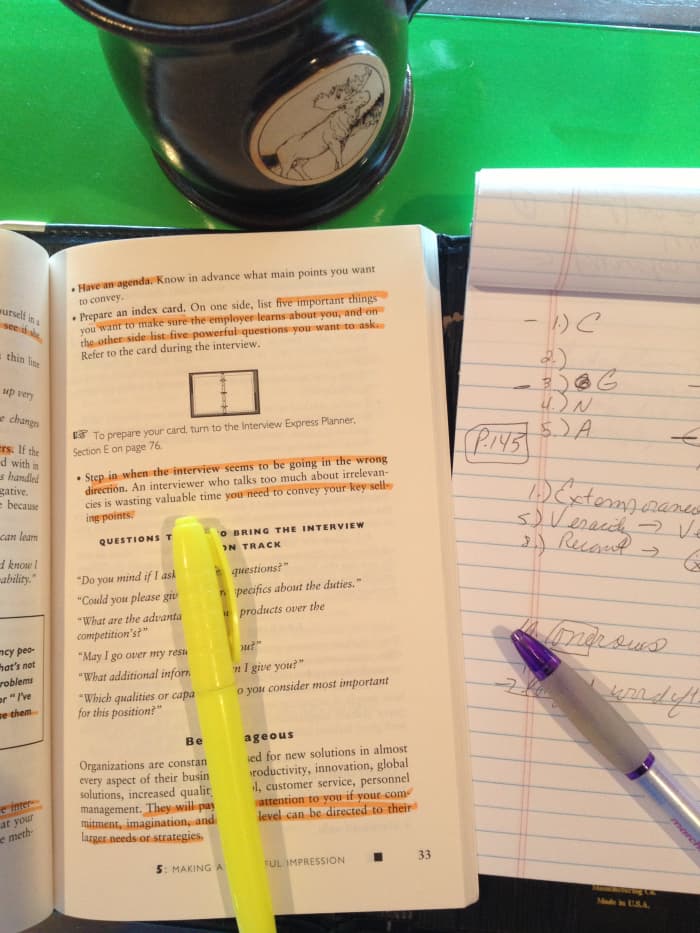 urself in a
see if she
thin line
up very
e changes
rs. If the
d with in
s handled
gative.
e because
can learn
d know I
ability."
ncy peo-
hat's not
roblems
or "I've
se them
e inter-
at your
e meth-
• Have an agenda. Know in advance what main points you want
to convey.
• Prepare an index card. On one side, list five important things
you want to make sure the employer learns about you, and on
the other side list five powerful questions you want to ask.
Refer to the card during the interview.
☞ To prepare your card, turn to the Interview Express Planner,
Section E on page 76.
• Step in when the interview seems to be going in the wrong
direction. An interviewer who talks too much about irrelevan-
cies is wasting valuable time you need to convey your key sell-
ing points.
QUESTIONS T O BRING THE INTERVIEW
ON TRACK
"Do you mind if I ask questions?"
"Could you please giv specifics about the duties."
"What are the advanta products over the
competition's?"
"May I go over my resu ou?"
"What additional inform n I give you?"
"Which qualities or capa o you consider most important
for this position?"
Be ageous
Organizations are constan sed for new solutions in almost
every aspect of their busin roductivity, innovation, global
solutions, increased qualit l, customer service, personnel
management. They will pay attention to you if your com-
mitment, imagination, and level can be directed to their
larger needs or strategies.
5: MAKING A FUL IMPRESSION ■ 33
- 1.) C
2.)
- 3.) G
4.) N
5.) A
P.145
1.) Extemporaneo
5.) Veracity → Ve
8.) Recant →
Congrous
Made in U.S.A.